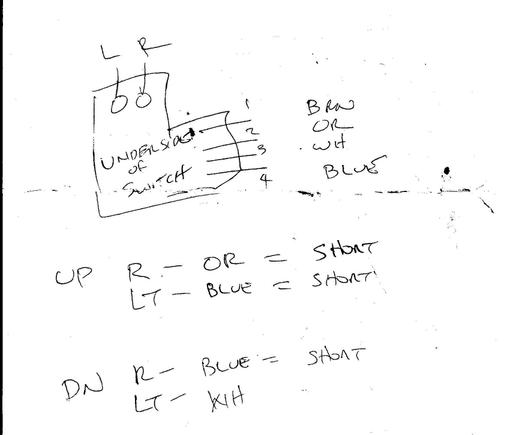 L R
1 BRN
2 OR
3 WH
4 BLUE
UNDERSIDE
OF
SWITCH
UP R - OR = SHORT
LT - BLUE = SHORT
DN R - BLUE = SHORT
LT - WH